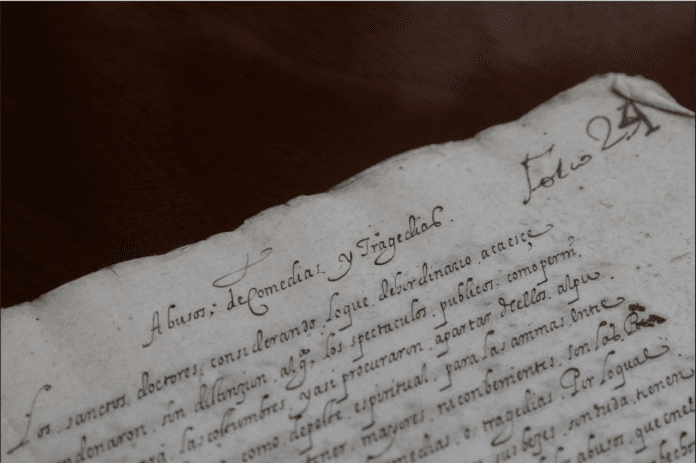 Folio 24
Abusos, de Comedias y Tragedias.
Los sanctos doctores, considerando lo que de ordinario acaesçe
sin distinçion algª los spectaculos publicos como perni
las costumbres, y asi procuraron apartar dellos al pu
como de peste espiritual para las animas, entre
mayores inconbenientes son las
comedias, o tragedias. Por lo qual
sus bezes, sin duda tienen
abusos, que en el